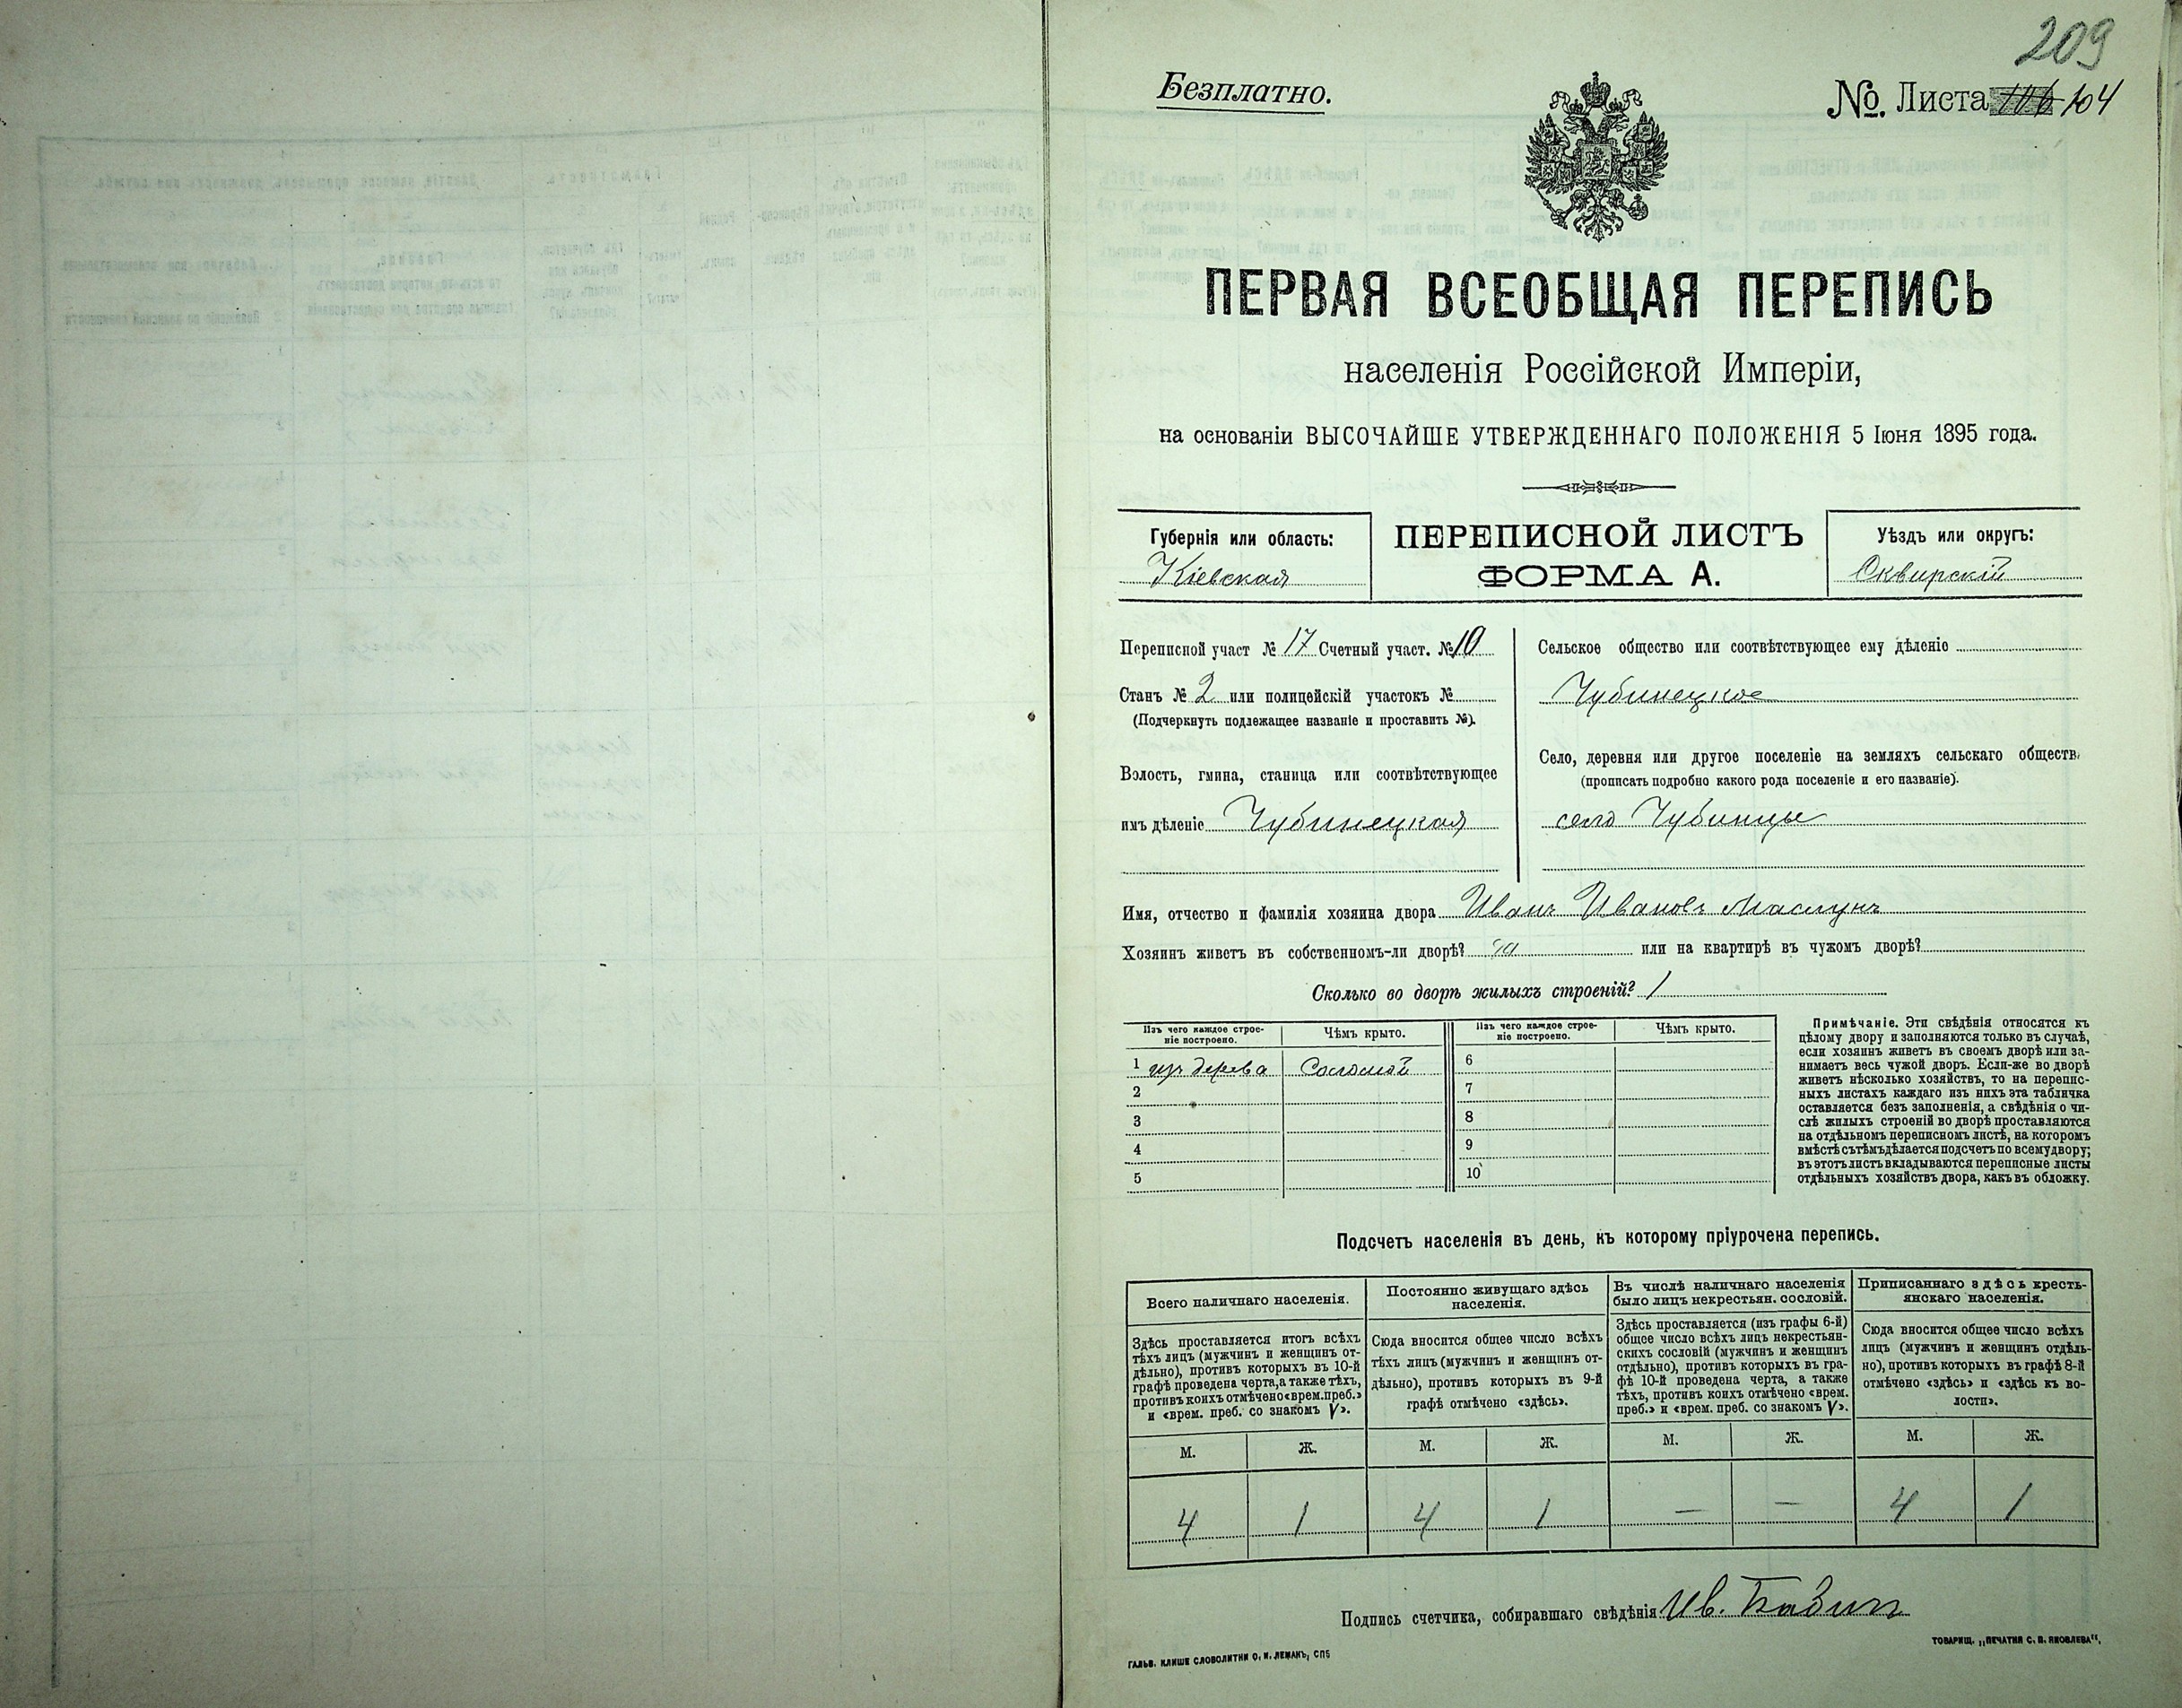 209
Безплатно.
№ Листа 106 104
ПЕРВАЯ ВСЕОБЩАЯ ПЕРЕПИСЬ
населенія Россійской Имперіи,
на основаніи ВЫСОЧАЙШЕ УТВЕРЖДЕННАГО ПОЛОЖЕНІЯ 5 Іюня 1895 года.
Губернія или область:
Кіевская
ПЕРЕПИСНОЙ ЛИСТЪ
ФОРМА А.
Уѣздъ или округъ:
Сквирскій
Переписной участ № 17 Счетный участ. № 10
Станъ № 2 или полицейскій участокъ №
(Подчеркнуть подлежащее названіе и проставить №).
Волость, гмина, станица или соотвѣтствующее
имъ дѣленіе Чубинецкая
Сельское общество или соотвѣтствующее ему дѣленіе
Чубинецкое
Село, деревня или другое поселеніе на земляхъ сельскаго обществ
(прописать подробно какого рода поселеніе и его названіе).
село Чубинцы
Имя, отчество и фамилія хозяина двора Иванъ Ивановъ Маслунъ
Хозяинъ живетъ въ собственномъ-ли дворѣ? да или на квартирѣ въ чужомъ дворѣ?
Сколько во дворѣ жилыхъ строеній? 1
Изъ чего каждое строе-
ніе построено.
Чѣмъ крыто.
Изъ чего каждое строе-
ніе построено.
Чѣмъ крыто.
1 изъ дерева Соломой 6
2 7
3 8
4 9
5 10
Примѣчаніе. Эти свѣдѣнія относятся къ
цѣлому двору и заполняются только въ случаѣ,
если хозяинъ живетъ въ своемъ дворѣ или за-
нимаетъ весь чужой дворъ. Если-же во дворѣ
живетъ нѣсколько хозяйствъ, то на перепис-
ныхъ листахъ каждаго изъ нихъ эта табличка
оставляется безъ заполненія, а свѣдѣнія о чи-
слѣ жилыхъ строеній во дворѣ проставляются
на отдѣльномъ переписномъ листѣ, на которомъ
вмѣстѣ съ тѣмъ дѣлается подсчетъ по всему двору;
въ этотъ листъ вкладываются переписные листы
отдѣльныхъ хозяйствъ двора, какъ въ обложку.
Подсчетъ населенія въ день, къ которому пріурочена перепись.
Всего наличнаго населенія.
Здѣсь проставляется итогъ всѣхъ
тѣхъ лицъ (мужчинъ и женщинъ от-
дѣльно), противъ которыхъ въ 10-й
графѣ проведена черта, а также тѣхъ,
противъ коихъ отмѣчено «врем. преб.»
и «врем. преб. со знакомъ V».
Постоянно живущаго здѣсь
населенія.
Сюда вносится общее число всѣхъ
тѣхъ лицъ (мужчинъ и женщинъ от-
дѣльно), противъ которыхъ въ 9-й
графѣ отмѣчено «здѣсь».
Въ числѣ наличнаго населенія
было лицъ некрестьян. сословій.
Здѣсь проставляется (изъ графы 6-й)
общее число всѣхъ лицъ некрестьян-
скихъ сословій (мужчинъ и женщинъ
отдѣльно), противъ которыхъ въ гра-
фѣ 10-й проведена черта, а также
тѣхъ, противъ коихъ отмѣчено «врем.
преб.» и «врем. преб. со знакомъ V».
Приписаннаго здѣсь кресть-
янскаго населенія.
Сюда вносится общее число всѣхъ
лицъ (мужчинъ и женщинъ отдѣль-
но), противъ которыхъ въ графѣ 8-й
отмѣчено «здѣсь» и «здѣсь къ во-
лости».
М. Ж. М. Ж. М. Ж. М. Ж.
4 1 4 1 — — 4 1
Подпись счетчика, собиравшаго свѣдѣнія Ив.
ГАЛЬВ. КЛИШЕ СЛОВОЛИТНИ О. И. ЛЕМАНЪ, СПБ
ТОВАРИЩ. „ПЕЧАТНЯ С. П. ЯКОВЛЕВА“.